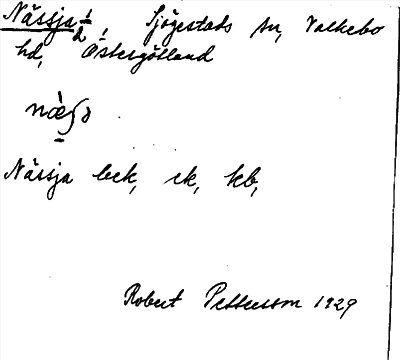 Nässja 1/2, Sjögestads sn, Valkebo
hd, Östergötland
Nässja bck, ek, kb,
Robert Pettersson 1929